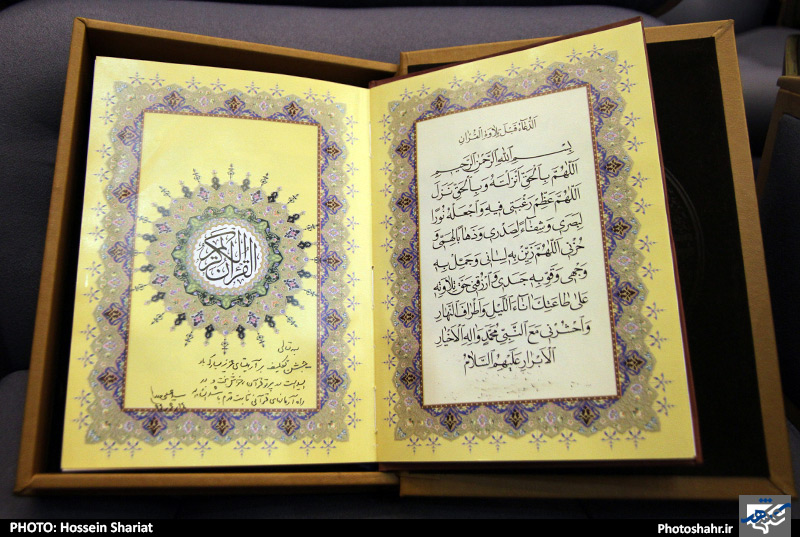 الدُّعَاءُ قَبْلَ تِلَاوَةِ الْقُرْآنِ
بِسْمِ اللهِ الرَّحْمٰنِ الرَّحِيمِ
اَللّٰهُمَّ بِالْحَقِّ اَنْزَلْتَهُ وَ بِالْحَقِّ نَزَلَ
اَللّٰهُمَّ عَظِّمْ رَغْبَتِي فِيهِ وَ اجْعَلْهُ نُورًا
لِبَصَرِي وَ شِفَاءً لِصَدْرِي وَ ذَهَابًا لِهَمِّي وَ
حُزْنِي اَللّٰهُمَّ زَيِّنْ بِهِ لِسَانِي وَ جَمِّلْ بِهِ
وَجْهِي وَ قَوِّ بِهِ جَسَدِي وَ ارْزُقْنِي حَقَّ تِلَاوَتِهِ
عَلَى طَاعَتِكَ آنَاءَ اللَّيْلِ وَ اَطْرَافَ النَّهَارِ
وَ احْشُرْنِي مَعَ النَّبِيِّ مُحَمَّدٍ وَ آلِهِ الْاَخْيَارِ
الْاَبْرَارِ عَلَيْهِمُ السَّلَامُ
القرآن الكريم
جشن تکلیف
راه آرمانهای قرآنی ثابت قدم
PHOTO: Hossein Shariat
Photoshahr.ir